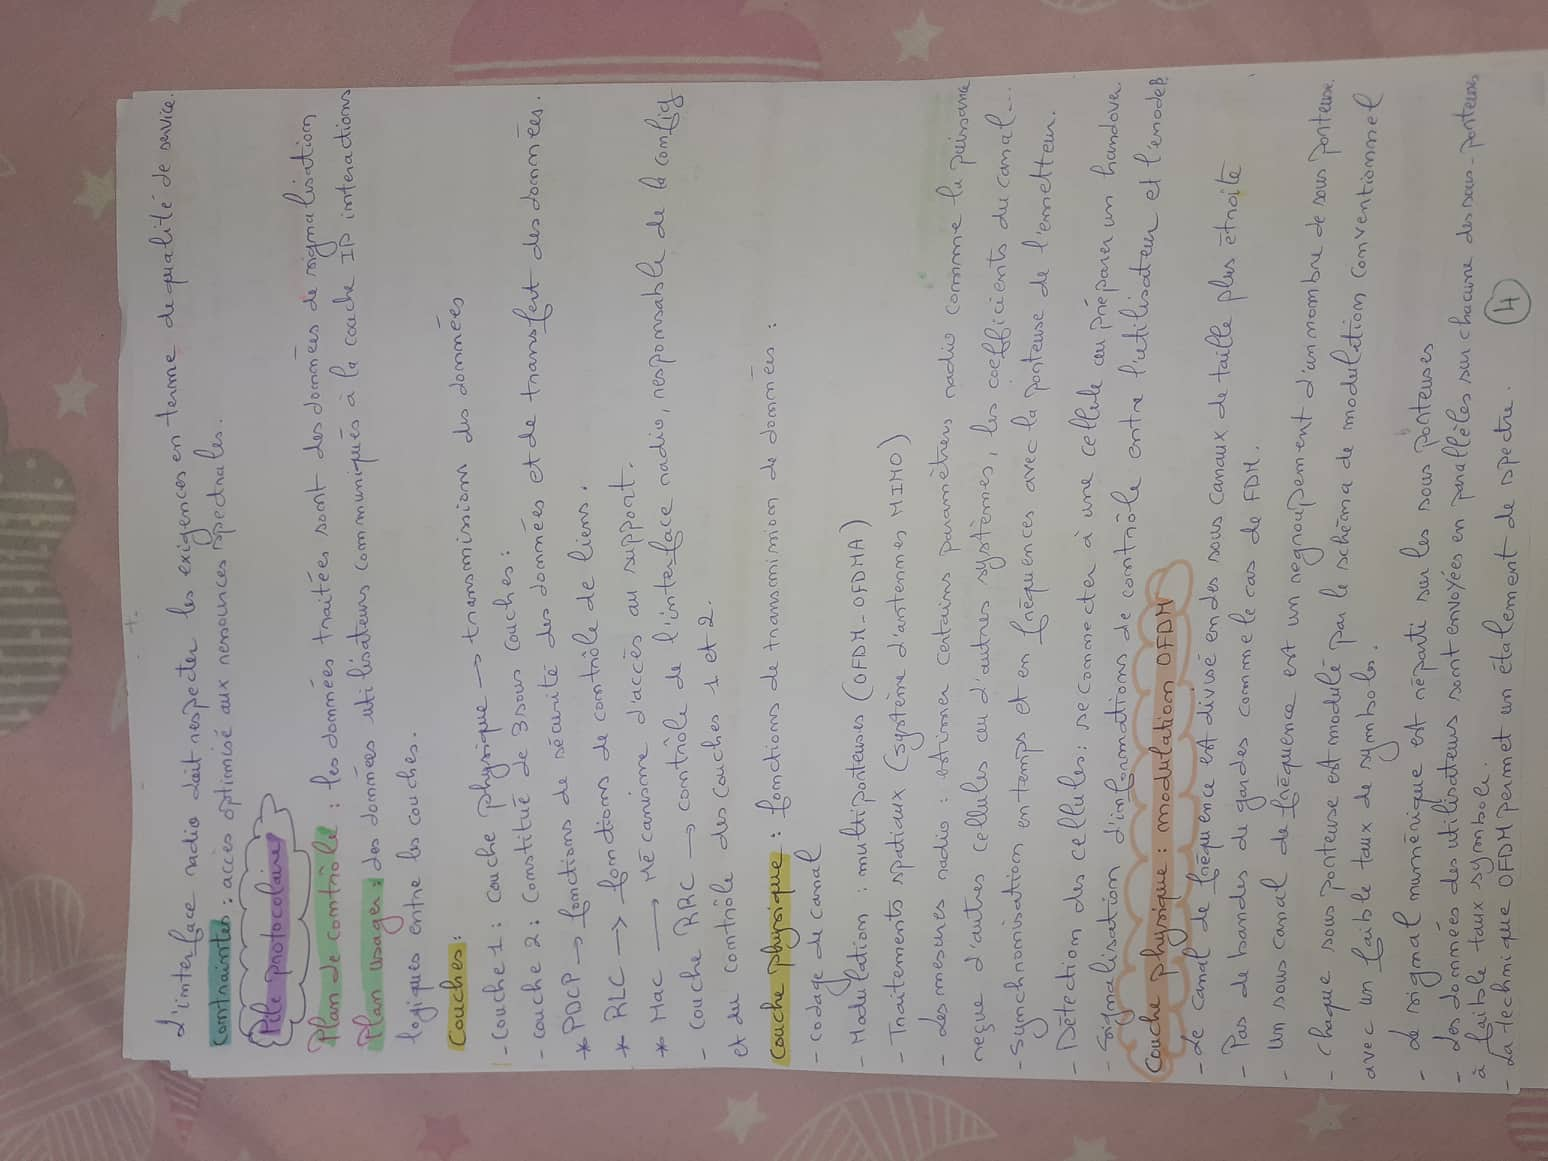 L'interface radio doit respecter les exigences en terme de qualité de service.
Contraintes : accès optimisé aux resources spectrales.
Pile protocolaire
Plan de contrôle : les données traitées sont des données de signalisation
Plan usager : des données utilisateurs communiqués à la couche IP interactions
logiques entre les couches.
Couches :
- Couche 1 : couche physique → transmission des données
- couche 2 : constitué de 3 sous couches :
* PDCP → fonctions de sécurité des données et de transfert des données.
* RLC → fonctions de contrôle de liens.
* Mac → Mécanisme d'accès au support.
- couche RRC → contrôle de l'interface radio, responsable de la config
et du contrôle des couches 1 et 2.
Couche physique : fonctions de transmission de données :
- codage de canal
- Modulation : multiporteuses (OFDM-OFDMA)
- Traitements spatiaux (système d'antennes MIMO)
- des mesures radio : estimer certains paramètres radio comme la puissance
reçue d'autres cellules ou d'autres systèmes, les coefficients du canal...
- Synchronisation en temps et en fréquences avec la porteuse de l'émetteur.
- Détection des cellules : se connecter à une cellule ou préparer un handover
- signalisation d'informations de contrôle entre l'utilisateur et l'enodeB
Couche physique : modulation OFDM
- Le canal de fréquence est divisé en des sous canaux de taille plus étroite
- Pas de bandes de gardes comme le cas de FDM.
- Un sous canal de fréquence est un regroupement d'un nombre de sous porteuse.
- Chaque sous porteuse est modulé par le schéma de modulation conventionnel
avec un faible taux de symboles.
- Le signal numérique est réparti sur les sous porteuses
- Les données des utilisateurs sont envoyées en parallèles sur chacune des sous-porteuses
à faible taux symbole.
- La technique OFDM permet un étalement de spectre.
4